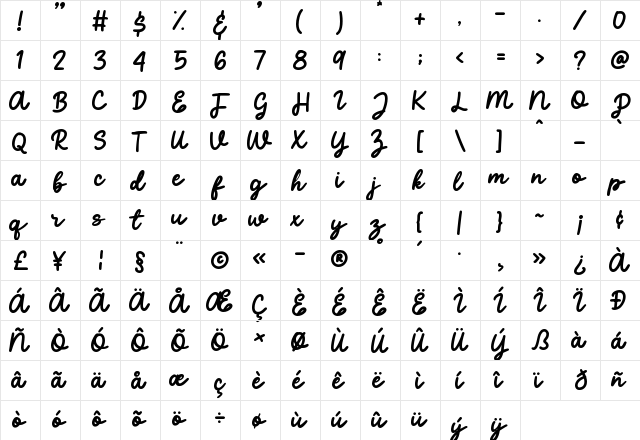 ! " # $ % & ' ( ) * + , - . / 0
1 2 3 4 5 6 7 8 9 : ; < = > ? @
A B C D E F G H I J K L M N O P
Q R S T U V W X Y Z [ \ ] ^ _
a b c d e f g h i j k l m n o p
q r s t u v w x y z { | } ~ ¡ ¢
£ ¥ ¦ § ¨ © « ¯ ® ´ · ¸ » ¿ À
Á Â Ã Ä Å Æ Ç È É Ê Ë Ì Í Î Ï Ð
Ñ Ò Ó Ô Õ Ö × Ø Ù Ú Û Ü Ý ß à á
â ã ä å æ ç è é ê ë ì í î ï ð ñ
ò ó ô õ ö ÷ ø ù ú û ü ý ÿ